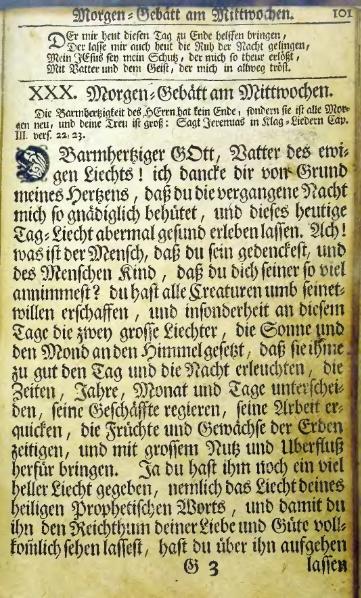 Morgen-Gebätt am Mittwochen. 101
DEr mir heut diesen Tag zu Ende helffen bringen,
Der lasse mir auch heut die Ruh der Nacht gelingen,
Mein JEsus sey mein Schutz, der mich so theur erlößt,
Mit Vatter und dem Geist, der mich in allweg tröst.
XXX. Morgen-Gebätt am Mittwochen.
Die Barmhertzigkeit des HErrn hat kein Ende, sondern sie ist alle Mor-
gen neu, und deine Treu ist groß: Sagt Jeremias in Klag-Liedern Cap.
III. vers. 22. 23.
O Barmhertziger GOtt, Vatter des ewi-
gen Liechts! ich dancke dir von Grund
meines Hertzens, daß du die vergangene Nacht
mich so gnädiglich behütet, und dieses heutige
Tag-Liecht abermal gesund erleben lassen. Ach!
was ist der Mensch, daß du sein gedenckest, und
des Menschen Kind, daß du dich seiner so viel
annimmest? du hast alle Creaturen umb seinet-
willen erschaffen, und insonderheit an diesem
Tage die zwey grosse Liechter, die Sonne und
den Mond an den Himmel gesetzt, daß sie ihme
zu gut den Tag und die Nacht erleuchten, die
Zeiten, Jahre, Monat und Tage unterschei-
den, seine Geschäffte regieren, seine Arbeit er-
quicken, die Früchte und Gewächse der Erden
zeitigen, und mit grossem Nutz und Uberfluß
herfür bringen. Ja du hast ihm noch ein viel
heller Liecht gegeben, nemlich das Liecht deines
heiligen Prophetischen Worts, und damit du
ihn den Reichthum deiner Liebe und Güte voll-
kom̄lich sehen lassest, hast du über ihn aufgehen
G 3 lassen